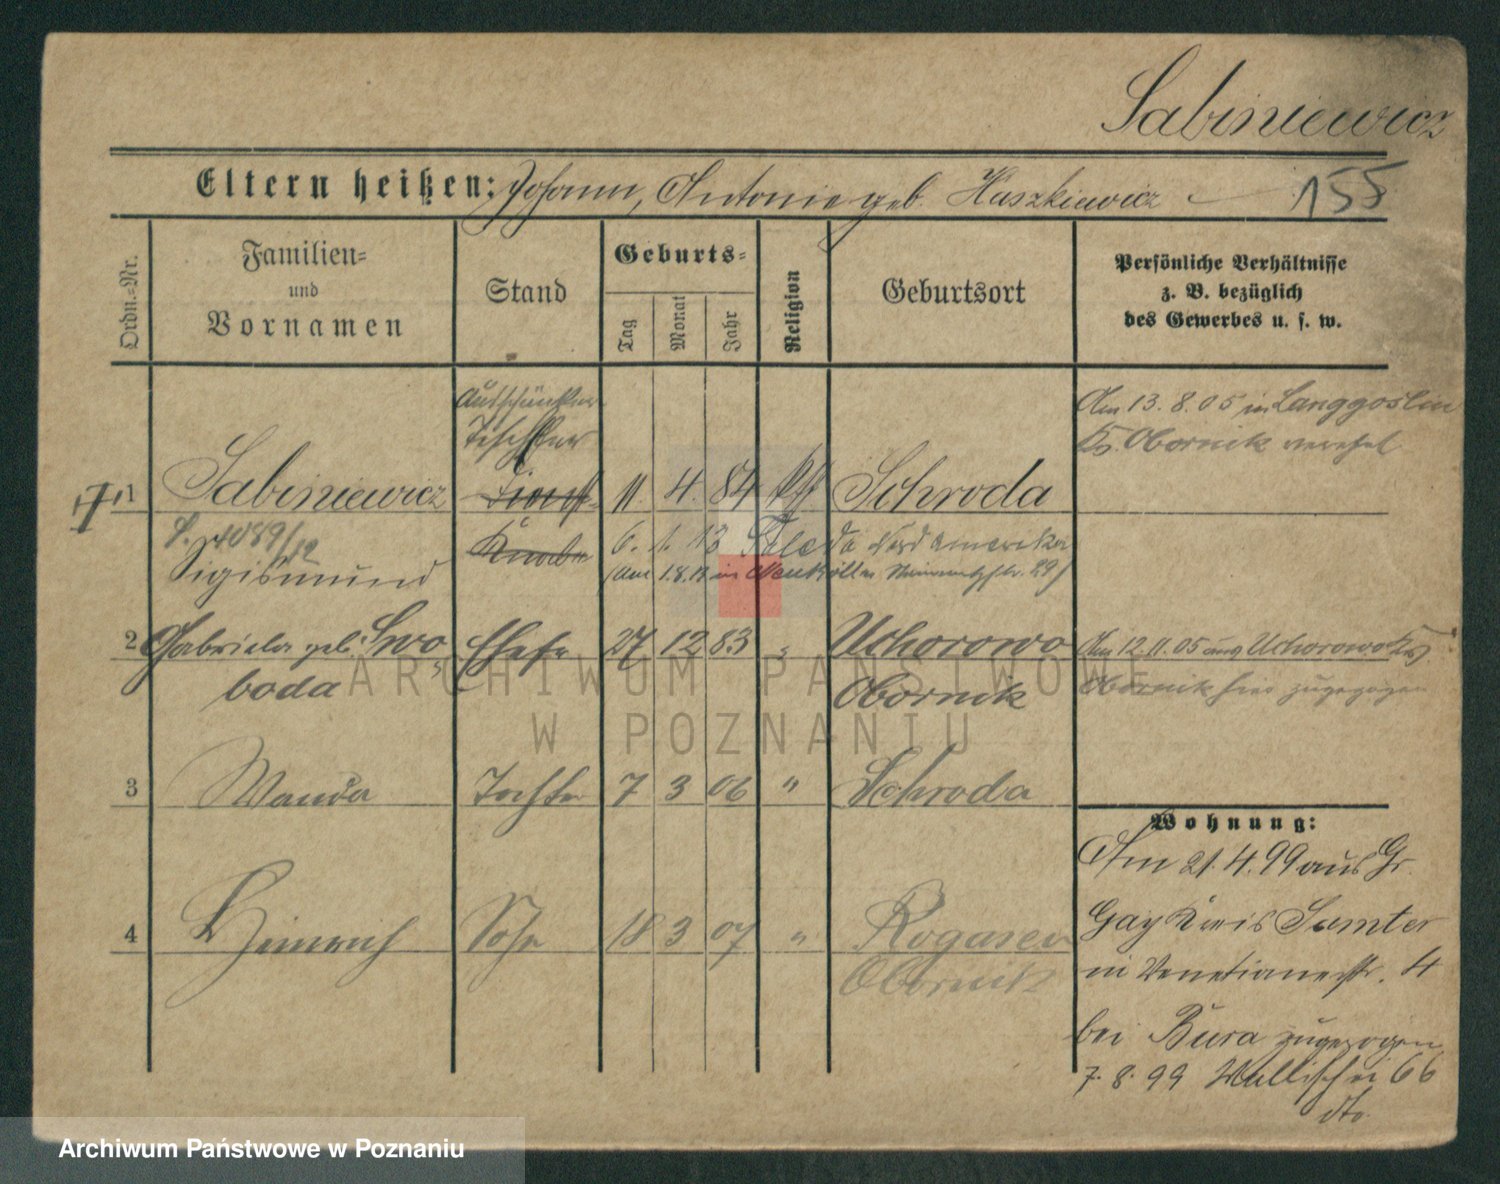 Sabiniewicz
Eltern heißen: Johann, Antonie geb. Haszkiewicz 155
Ordn.-Nr.
Familien- und Vornamen
Stand
Geburts-
Tag
Monat
Jahr
Religion
Geburtsort
Persönliche Verhältnisse
z. B. bezüglich
des Gewerbes u. s. w.
Am 13. 8. 05 in Langgoslin
Obornik
1 Sabiniewicz 11. 4. 84 Schroda
4089/12
Sigismund
6. 1. 13 Nord Amerika
2 Gabriela geb. Swo
boda
Ehefr 27 12 83 " Uchorowo
Obornik
Am 12. 11. 05 aus Uchorowo Kr.
Obornik hier zugezogen
3 Wanda Tochter 7 3 06 " Schroda
Wohnung:
Am 21. 4. 99 aus Gr.
Gay Kreis Samter
in Venetianerstr. 4
bei Bura zugezogen
7. 8. 99 Wallischei 66
dto.
4 Heinrich Sohn 18 3 07 " Rogasen
Obornik
ARCHIWUM PAŃSTWOWE
W POZNANIU
Archiwum Państwowe w Poznaniu